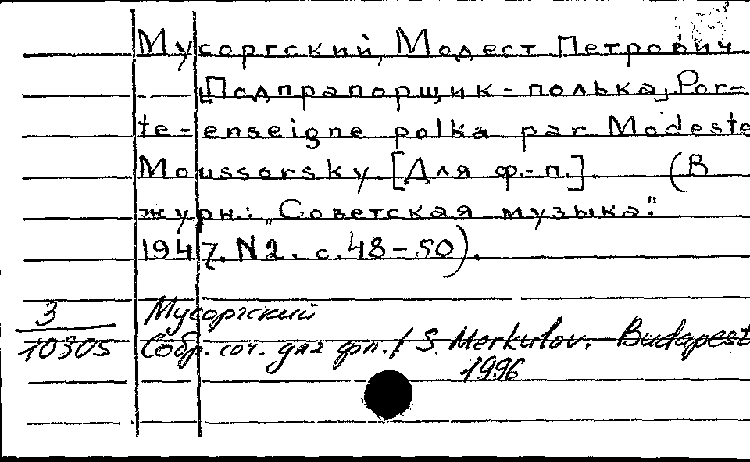 Мусоргский, Модест Петрович
[Подпрапорщик-полька] Por=
te-enseigne polka par Modeste
Moussorsky. [Для ф.-п.] (В
журн.: „Советская музыка"
1947. N2. с. 48-50).
Мусоргский
3
10305 Собр. соч. для фп. / S. Merkulov. - Budapest
1996